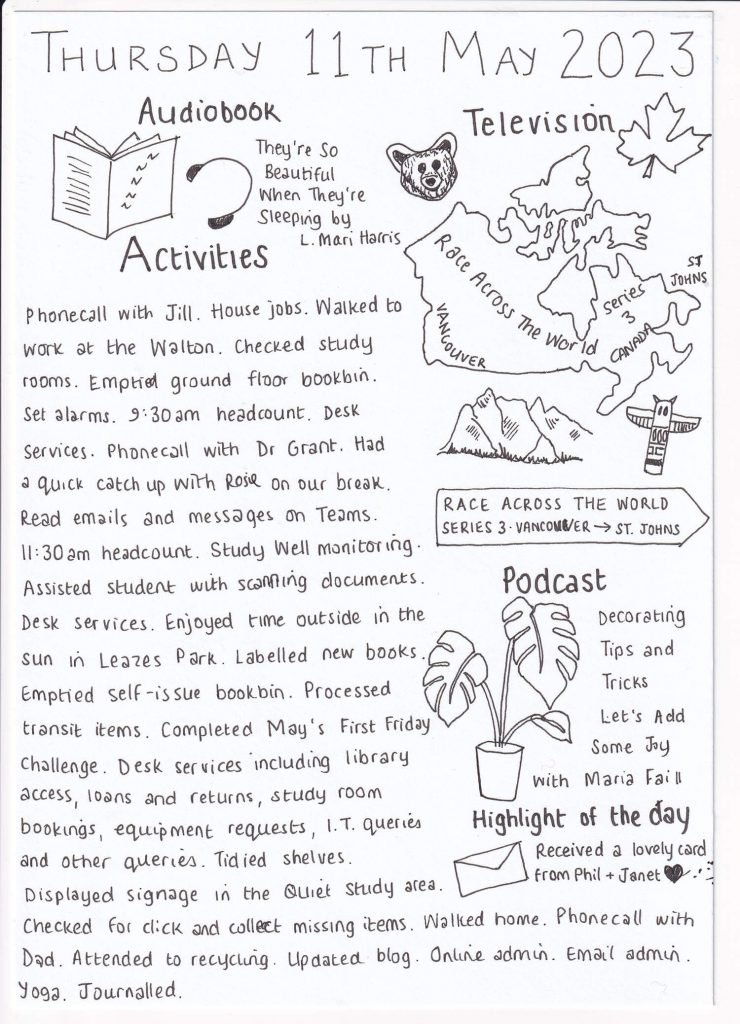 THURSDAY 11TH MAY 2023
Audiobook
They're So
Beautiful
When They're
Sleeping by
L. Mari Harris
Television
Race Across The World
series
3
CANADA
VANCOUVER
ST
JOHNS
RACE ACROSS THE WORLD
SERIES 3 · VANCOUVER → ST. JOHNS
Activities
Phonecall with Jill. House jobs. Walked to
work at the Walton. Checked study
rooms. Emptied ground floor bookbin.
Set alarms. 9:30am headcount. Desk
services. Phonecall with Dr Grant. Had
a quick catch up with Rosie on our break.
Read emails and messages on Teams.
11:30am headcount. Study Well monitoring.
Assisted student with scanning documents.
Desk services. Enjoyed time outside in the
sun in Leazes Park. Labelled new books.
Emptied self-issue bookbin. Processed
transit items. Completed May's First Friday
Challenge. Desk services including library
access, loans and returns, study room
bookings, equipment requests, I.T. queries
and other queries. Tidied shelves.
Displayed signage in the Quiet Study area.
Checked for click and collect missing items. Walked home. Phonecall with
Dad. Attended to recycling. Updated blog. Online admin. Email admin.
Yoga. Journalled.
Podcast
Decorating
Tips and
Tricks
Let's Add
Some Joy
with Maria Faill
Highlight of the day
Received a lovely card
from Phil + Janet ♥